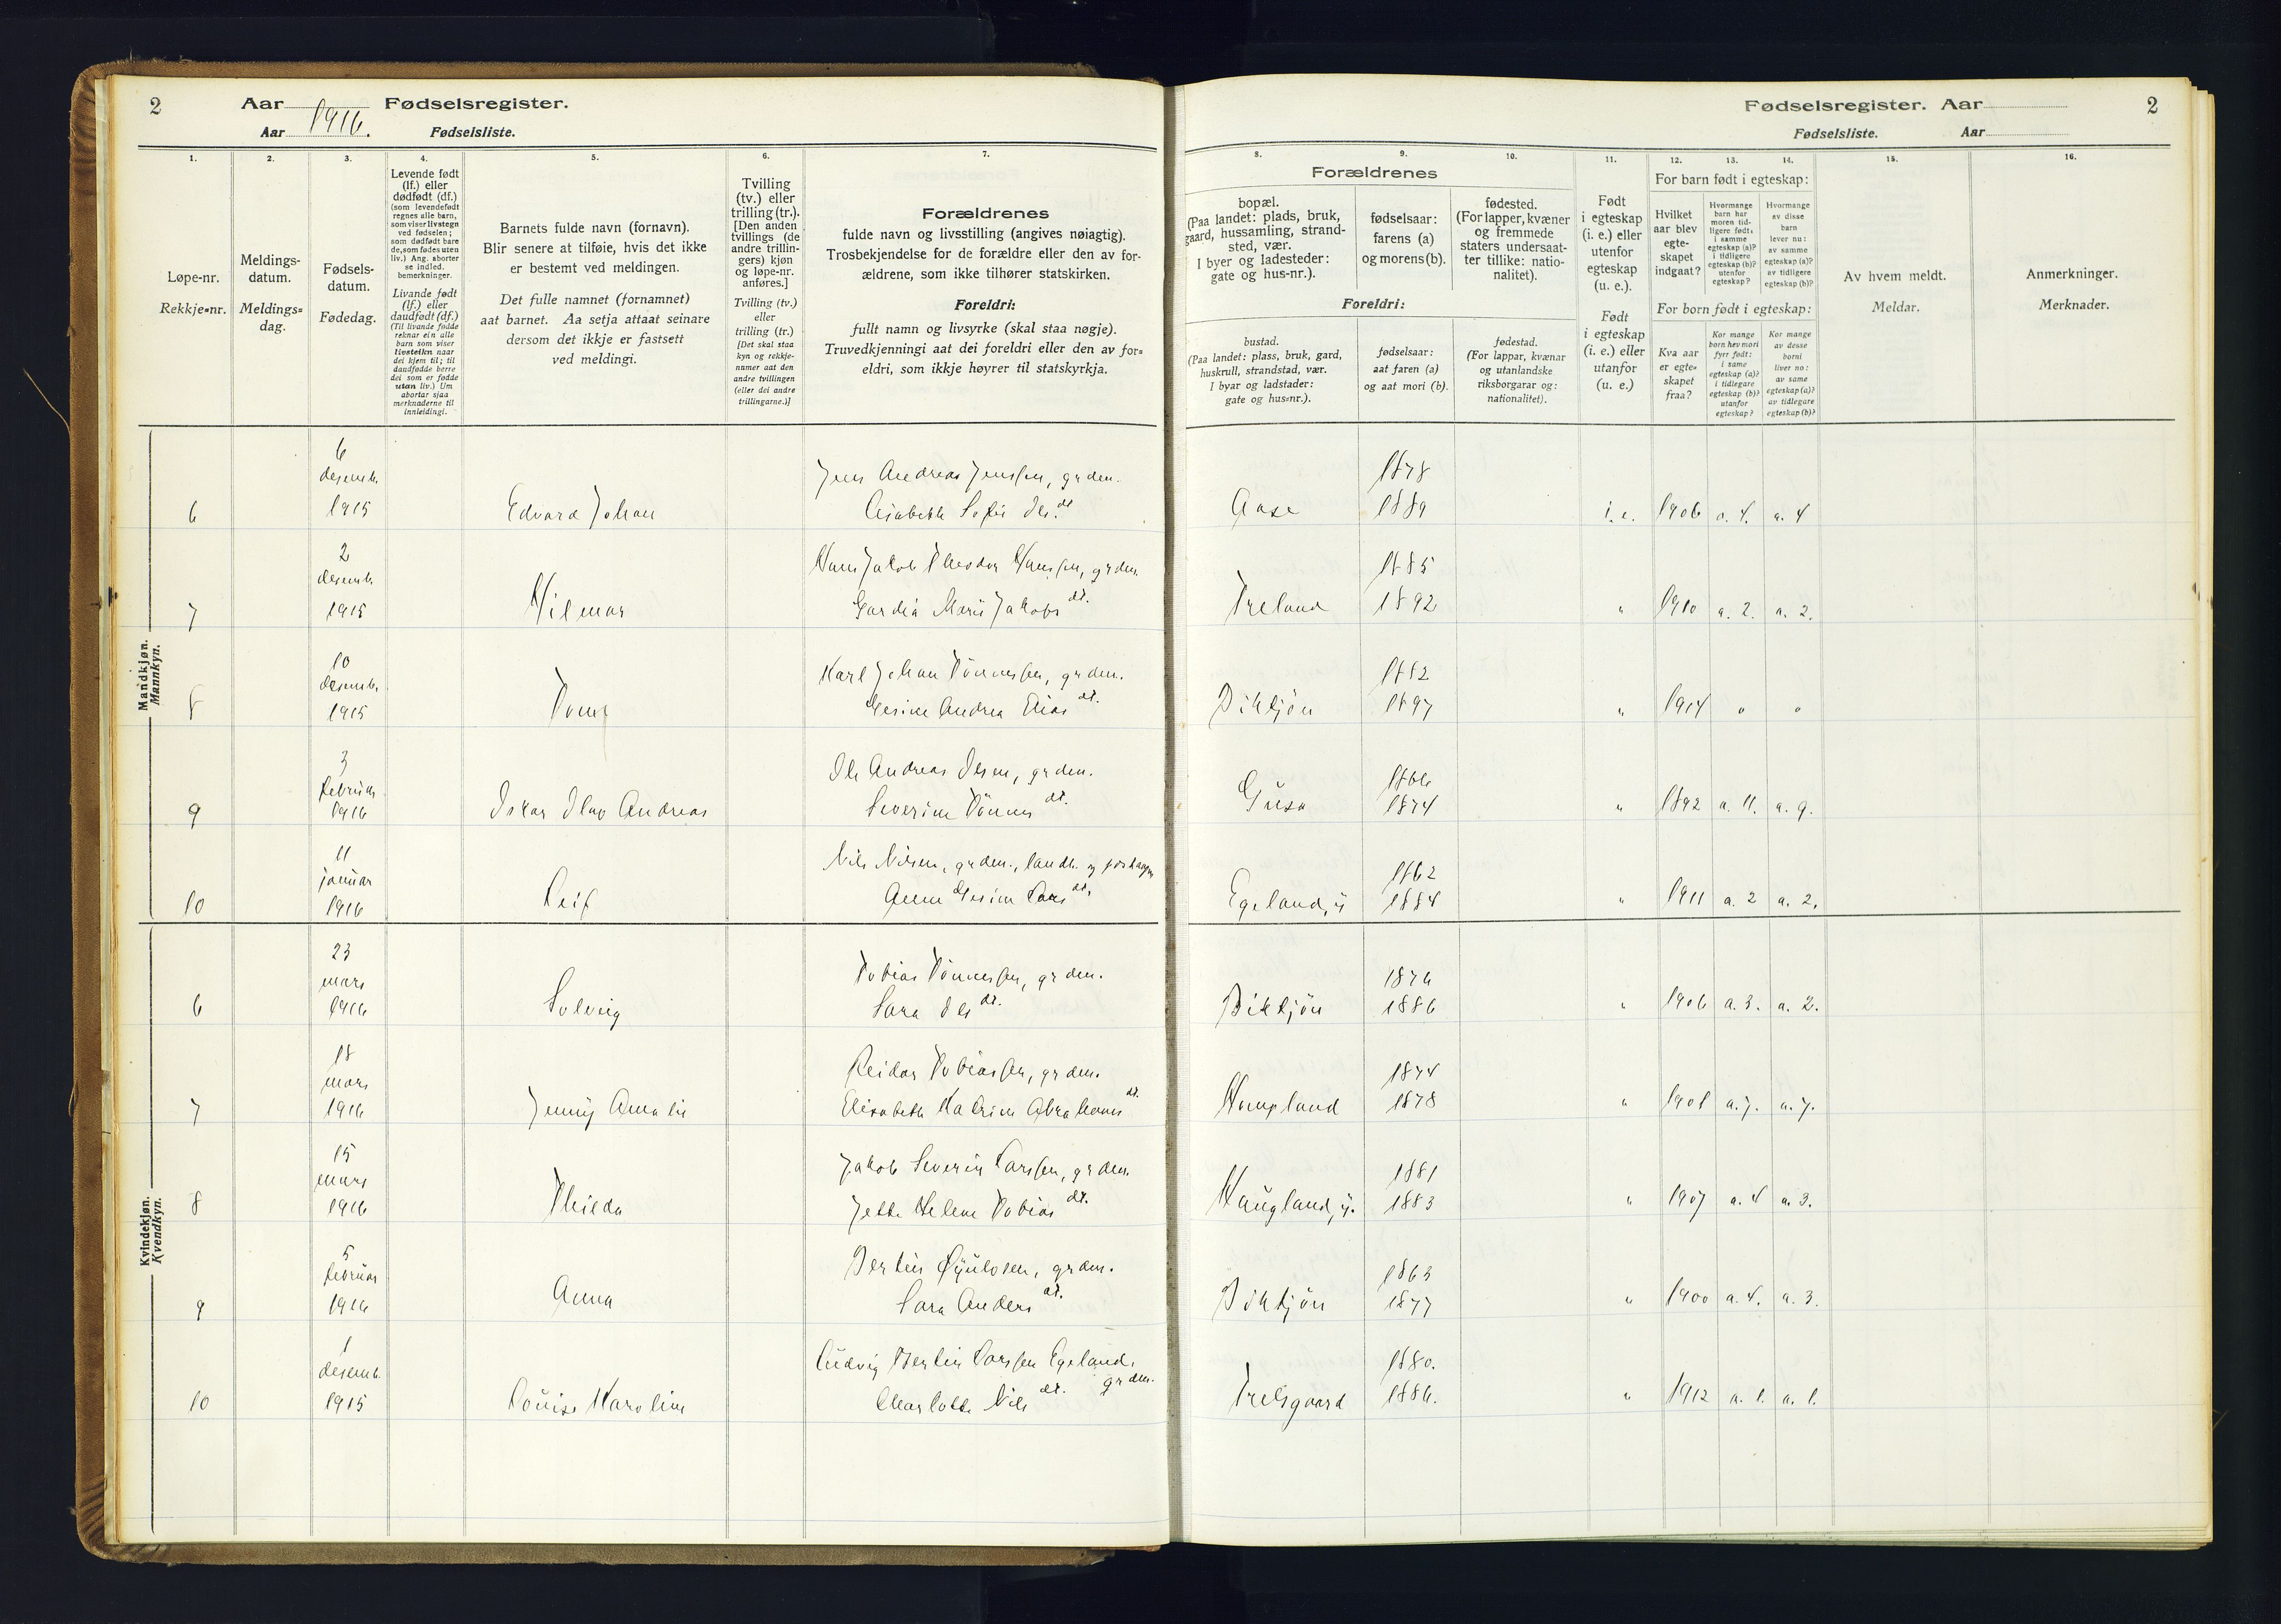 2
Aar 1916. Fødselsregister.
Aar Fødselsliste.
Fødselsregister. Aar
2
Fødselsliste. Aar
1.
Løpe-nr.
Rekkje-nr.
2.
Meldings-
datum.
Meldings-
dag.
3.
Fødsels-
datum.
Fødedag.
4.
Levende født
(lf.) eller
dødfødt (df.)
(som levendefødt
regnes alle barn,
som viser livstegn
ved fødselen;
som dødfødt bare
de, som fødes uten
liv.) Ang. aborter
se indled.
bemerkninger.
Livande født
(lf.) eller
daudfødt (df.)
(Til livande fødde
reknar ein alle
barn som viser
livsteikn naar
dei kjem til; til
daudfødde berre
dei som er fødde
utan liv.) Um
abortar sjaa
merknaderne til
innleidingi.
5.
Barnets fulde navn (fornavn).
Blir senere at tilføie, hvis det ikke
er bestemt ved meldingen.
Det fulle namnet (fornamnet)
aat barnet. Aa setja attaat seinare
dersom det ikkje er fastsett
ved meldingi.
6.
Tvilling
(tv.) eller
trilling (tr.).
[Den anden
tvillings (de
andre trillin-
gers) kjøn
og løpe-nr.
anføres.]
Tvilling (tv.)
eller
trilling (tr.)
[Det skal staa
kyn og rekkje-
nummer aat den
andre tvillingen
(eller dei andre
trillingarne.)]
7.
Forældrenes
fulde navn og livsstilling (angives nøiagtig).
Trosbekjendelse for de forældre eller den av for-
ældrene, som ikke tilhører statskirken.
Foreldri:
fullt namn og livsyrke (skal staa nøgje).
Truvedkjenningi aat dei foreldri eller den av for-
eldri, som ikkje høyrer til statskyrkja.
Forældrenes
8.
bopæl.
(Paa landet: plads, bruk,
gaard, hussamling, strand-
sted, vær.
I byer og ladesteder:
gate og hus-nr.).
9.
fødselsaar:
farens (a)
og morens (b).
10.
fødested.
(For lapper, kvæner
og fremmede
staters undersaat-
ter tillike: natio-
nalitet).
Foreldri:
bustad.
(Paa landet: plass, bruk, gard,
huskrull, strandstad, vær.
I byar og ladstader:
gate og hus-nr.).
fødselsaar:
aat faren (a)
og aat mori (b).
fødestad.
(For lappar, kvænar
og utanlandske
riksborgarar og:
nationalitet).
11.
Født
i egteskap
(i. e.) eller
utenfor
egteskap
(u. e.).
Født
i egteskap
(i. e.) eller
utanfor
(u. e.)
For barn født i egteskap:
12.
Hvilket
aar blev
egte-
skapet
indgaat?
13.
Hvormange
barn har
moren tid-
ligere født:
i samme
egteskap (a)?
i tidligere
egteskap (b)?
utenfor
egteskap?
14.
Hvormange
av disse
barn
lever nu:
av samme
egteskap (a)?
av tidligere
egteskap (b)?
For born født i egteskap:
Kva aar
er egte-
skapet
fraa?
Kor mange
born hev mori
fyrr født:
i same
egteskap (a)?
i tidlegare
egteskap (b)?
utanfor
egteskap?
Kor mange
av desse
borni
liver no:
av same
egteskap (a)?
av tidlegare
egteskap (b)?
15.
Av hvem meldt.
Meldar.
16.
Anmerkninger.
Merknader.
Mandkjøn.
Mannkyn.
6 6 desemb. 1915 Edvard Johan Jens Andreas Jenssen, grdm. Sofie Ols dt. Aase 1878 1889 i. e. 1906 a. 4. a. 4
7 2 desemb. 1915 Hilmar Hans Jakob Theodor Hanssen, grdm. Gardia Marie Jakobs dt. Treland 1885 1892 " 1910 a. 2. a. 2.
8 10 desemb. 1915 Karl Johan Tönnessen, grdm. Gesine Andrea Elias dt. Birkjön 1882 1897 " 1914 " "
9 3 februar 1916 Oskar Olav Andreas Ole Andreas Olsen, grdm. Severine Tönnes dt. Gusa 1866 1874 " 1892 a. 11. a. 9.
10 11 januar 1916 Leif Nils Nilsen, grdm., landh. og Anne Gesine Lars dt. Egeland, y 1862 1884 " 1911 a. 2 a. 2.
Kvindekjøn.
Kvendkyn.
6 23 mars 1916 Solveig Tobias Tönnessen, grdm. Sara Ols dt. Birkjön 1876 1886 " 1906 a. 3. a. 2.
7 18 mars 1916 Jenny Amalie Reidar Tobiassen, grdm. Elisabeth Katrine Abrahams dt. 1874 1878 " 1908 a. 7. a. 7.
8 15 mars 1916 Thilda Jakob Severin Larssen, grdm. Jette Helene Tobias dt. Haugland, y. 1881 1883 " 1907 a. 4 a. 3.
9 5 februar 1916 Anna Bertin grdm. Sara Anders dt. Birkjön 1863 1877 " 1900 a. 4. a. 3.
10 1 desemb. 1915 Louise Karoline Ludvig Bertin Larssen Egeland, grdm. Charlotte Nils dt. Trelsgaard 1880. 1886. " 1912 a. 1. a. 1.